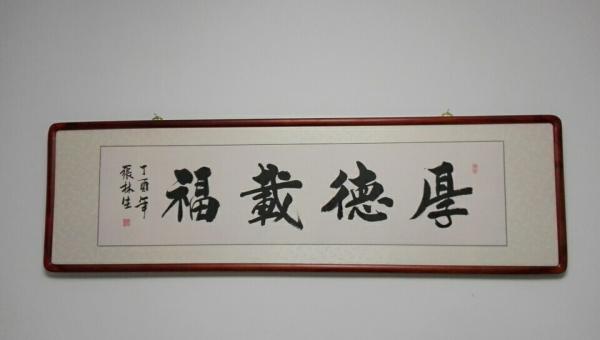 厚德載福
丁酉年
張林生